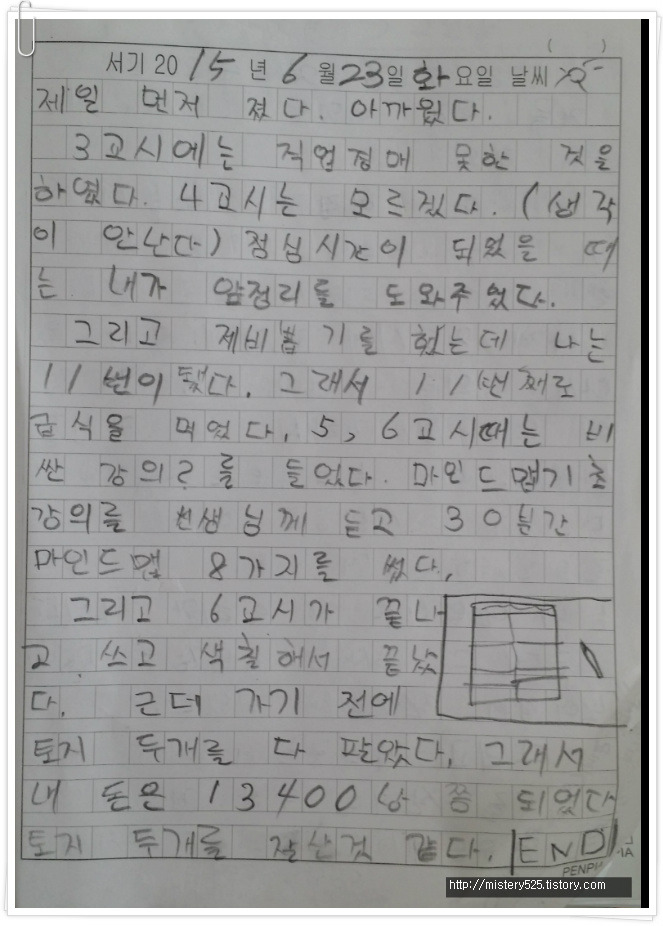 서기 2015년 6월 23일 화요일 날씨
제일 먼저 졌다. 아까웠다.
3교시에는 직업경매 못한 것을
하였다. 4교시는 모르겠다. (생각
이 안난다) 점심시간이 되었을 때
는 내가 앞정리를 도와주었다.
그리고 제비뽑기를 했는데 나는
11번이 됐다. 그래서 11번째로
급식을 먹었다. 5, 6교시때는 비
싼 강의?를 들었다. 마인드맵기초
강의를 선생님께 듣고 30분간
마인드맵 8가지를 썼다.
그리고 6교시가 끝나
고 쓰고 색칠해서 끝났
다. 근데 가기 전에
토지 두개를 다 팔았다. 그래서
내 돈은 13400상 쯤 되었다
토지 두개를 잘산것 같다. END
PENPIA
http://mistery525.tistory.com